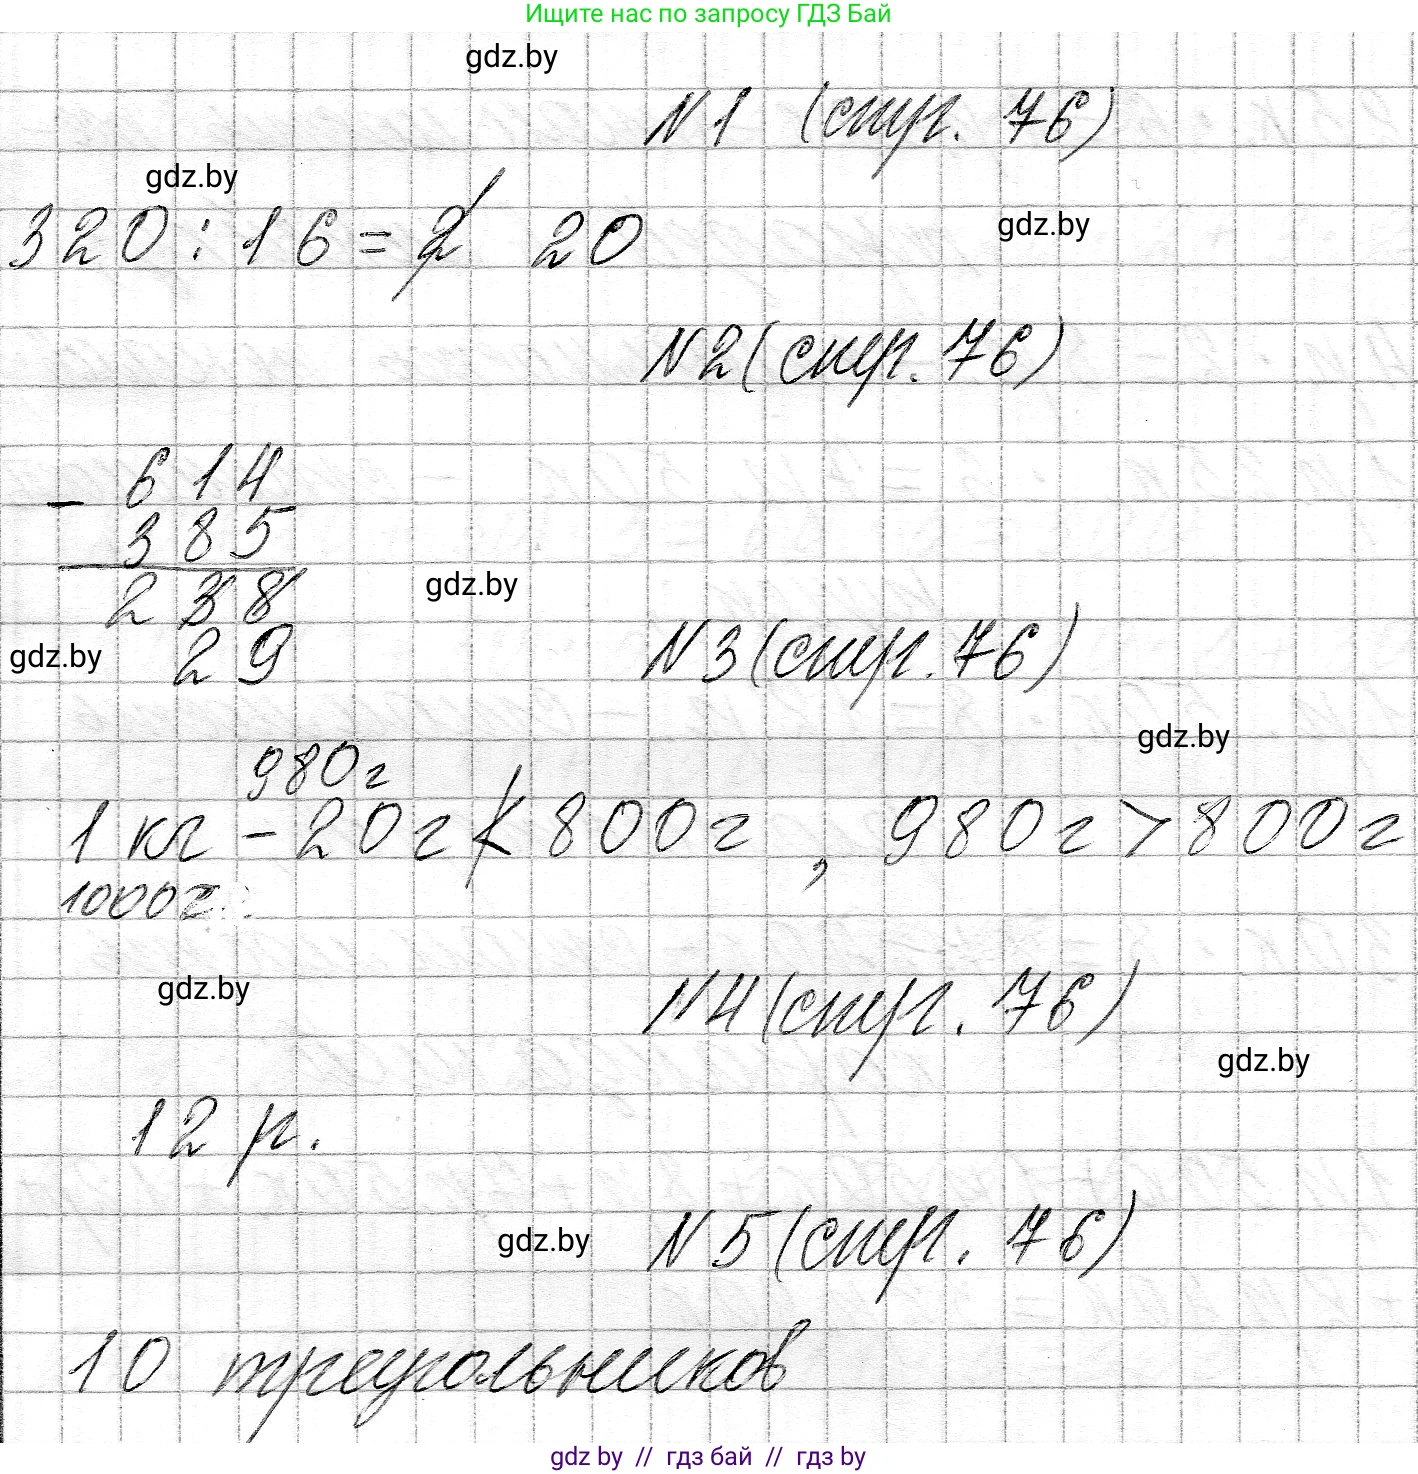 Ищите нас по запросу ГДЗ Бай
gdz.by
N1 (стр. 76)
gdz.by
320 : 16 = 2 20
gdz.by
N2 (стр. 76)
- 614
385
238
gdz.by
29
gdz.by
N3 (стр. 76)
gdz.by
980г
1 кг - 20г < 800г , 980г > 800г
1000г
gdz.by
N4 (стр. 76)
gdz.by
12 р.
gdz.by
N5 (стр. 76)
10 треугольников
gdz by // гдз бай // гдз by